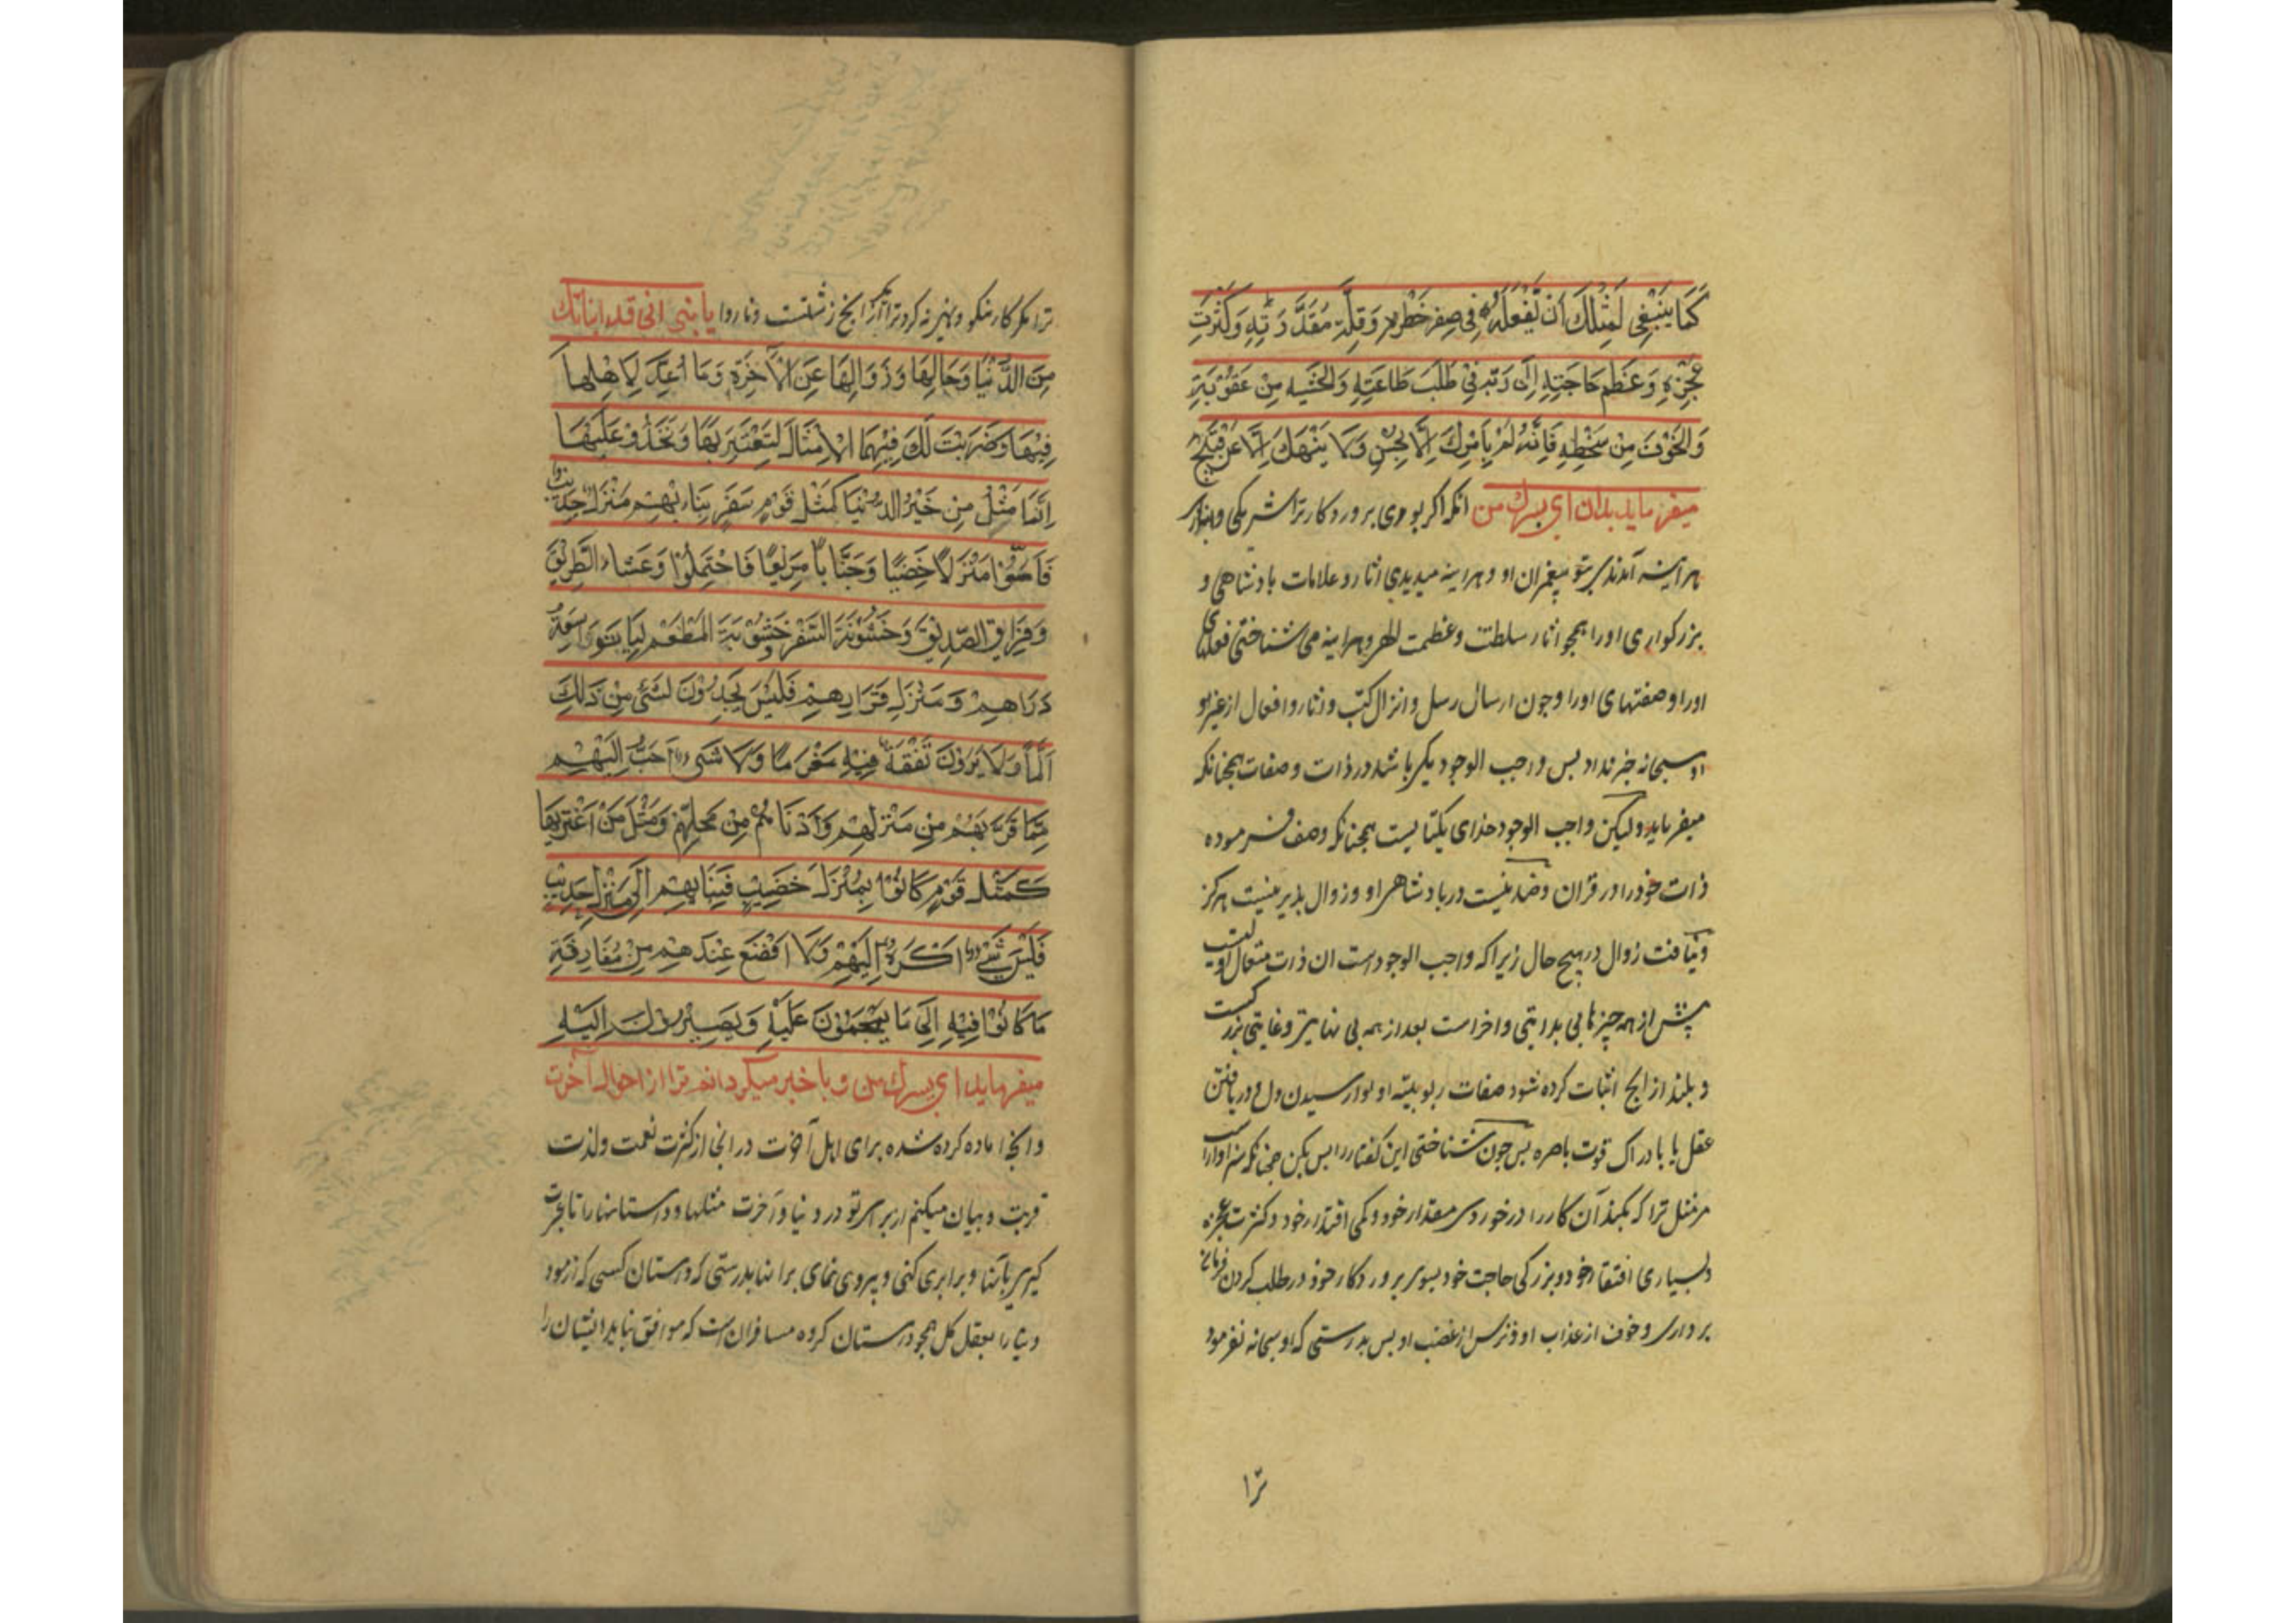 كَمَا يَنْبَغِي لِمِثْلِكَ أَنْ يَفْعَلَهُ فِي صِغَرِ خَطَرِهِ وَقِلَّةِ مَقْدَرَتِهِ وَكَثْرَتِ
عَجْزِهِ وَعَظِم حَاجَتِهِ إِلَى رَبِّهِ فِي طَلَبِ طَاعَتِهِ وَالخَشْيَه مِنْ عَقُوْبَتِهِ
وَالخَوْفَ مِنْ سَخَطِهِ فَإِنَّهُ لَمْ يَأمُرْكَ إِلَّا بِحُسْنٍ وَلَا يَنْهَكَ إِلَّا عَنْ قَبِيْحٍ
ميفرمايد بدان اى پسرك من انكه اكر بودى پروردكار ترا شريكى
هر آينه آمدندى بتو پيغمبران او و هراينه ميديدى اثار و علامات بادشاهى و
بزركوارى اورا همچو اثار سلطنت و عظمت و هراينه مى شناختى
اورا و صفتهاى اورا و چون ارسال رسل و انزال كتب و اثار و افعال از غير او
او سبحانه خبر نداد پس واجب الوجود يكى باشد در ذات و صفات همچنانكه
ميفرمايد وليكن واجب الوجود خداى يكتاييست همچنانكه وصف فرموده
ذات خود را در قران و ضد نيست در بادشاهى او و زوال پذير نيست هركز
و نيافت زوال در هيچ حال زيرا كه واجب الوجود است ان ذات متعال
پيش از همه چيزها بى بدايتى و اخر است بعد از همه بى نهايتى و غايتى
و بلند از انچ اثبات كرده شود صفات ربوبيته او در يافتن
عقل يا بادراك قوت باصره پس چون شناختى اين كفتار را پس بكن چنانكه سزاوار است
مر مثل ترا كه بكند آن كار را در خوردى مقدار خود و كمى اقتدار خود و كثرت عجزه
و بسيارى افتقار خود و بزركى حاجت خود بسوى پروردكار خود در طلب كردن
بردارى و خوف از عذاب او و ترس از غضب او پس بدرستى كه او سبحانه نفرمود
ترا
ترا مكر كار نيكو و نهى نه كرد ترا مكر از انچ زشتست و ناروا يا بني اني قد انباتك
مِنَ الدُّنْيَا وَحَالِهَا وَزَوَالِهَا عَنِ الْآخِرَةِ وَمَا أُعِدَّ لِاَهْلِهَا
فِيْهَا وَضَرَبْتُ لَكَ فِيْهِمَا الْأَمْثَالَ لِتَعْتَبِرَ بِهَا وَتَحْذُوْ عَلَيْهَا
إِنَّمَا مَثَلُ مَنْ خَبَرَ الدُّنْيَا كَمَثَلِ قَوْمٍ سَفَرٍ نَبَاءَ بِهِمْ مَنْزِلٌ جَدِيْبٌ
فَأَمُّوْا مَنْزِلًا خَصِيْبًا وَجَنَابًا مَرِيْعًا فَاحْتَمَلُوْا وَعَثَاءَ الطَّرِيْقِ
وَفِرَاقِ الصَّدِيْقِ وَخُشُوْنَةَ السَّفَرِ وَجُشُوْبَةَ المَطْعَمِ لِيَأْتُوْا سَعَةَ
دَارِهِمْ وَمَنْزِلَ قَرَارِهِمْ فَلَيْسَ يَجِدُوْنَ لِشَيْءٍ مِنْ ذَلِكَ
اَلَمًا وَلَا يَرَوْنَ نَفَقَةً فِيْهِ مَغْرَمًا وَلَا شَيْءَ أَحَبُّ إِلَيْهِمْ
مِمَّا قَرَّبَهُمْ مِنْ مَنْزِلِهِمْ وَأَدْنَاهُمْ مِنْ مَحَلِّهِمْ وَمَثَلُ مَنْ اغْتَرَّ بِهَا
كَمَثَلِ قَوْمٍ كَانُوْا بِمَنْزِلٍ خَصِيْبٍ فَنَبَا بِهِمْ إِلَى مَنْزِلٍ جَدِيْبٍ
فَلَيْسَ شَيْءٌ اَكْرَهَ إِلَيْهِمْ وَلَا اَفْضَعَ عِنْدَهِمْ مِنْ مُفَارِقَةِ
مَا كَانُوْا فِيْهِ إِلَى مَا يَهْجُمُوْنَ عَلَيْهِ وَيَصِيْرُوْنَ إِلَيْهِ
ميفرمايد اى پسرك من و با خبر ميكردانم ترا از احوال آخرت
و انچ اماده كرده شده براى اهل آخرت در انجا از كثرت نعمت و لذت
قربت و بيان ميكنم از براى تو در دنيا و آخرت مثلها و داستانها را تا عبرت
كيرى بآنها و برابرى كنى و پيروى نماى بر انها بدرستى كه داستان كسى كه ازمود
دنيا را بعقل كل همچو داستان كروه مسافرانست كه موافق نيايد ايشان را